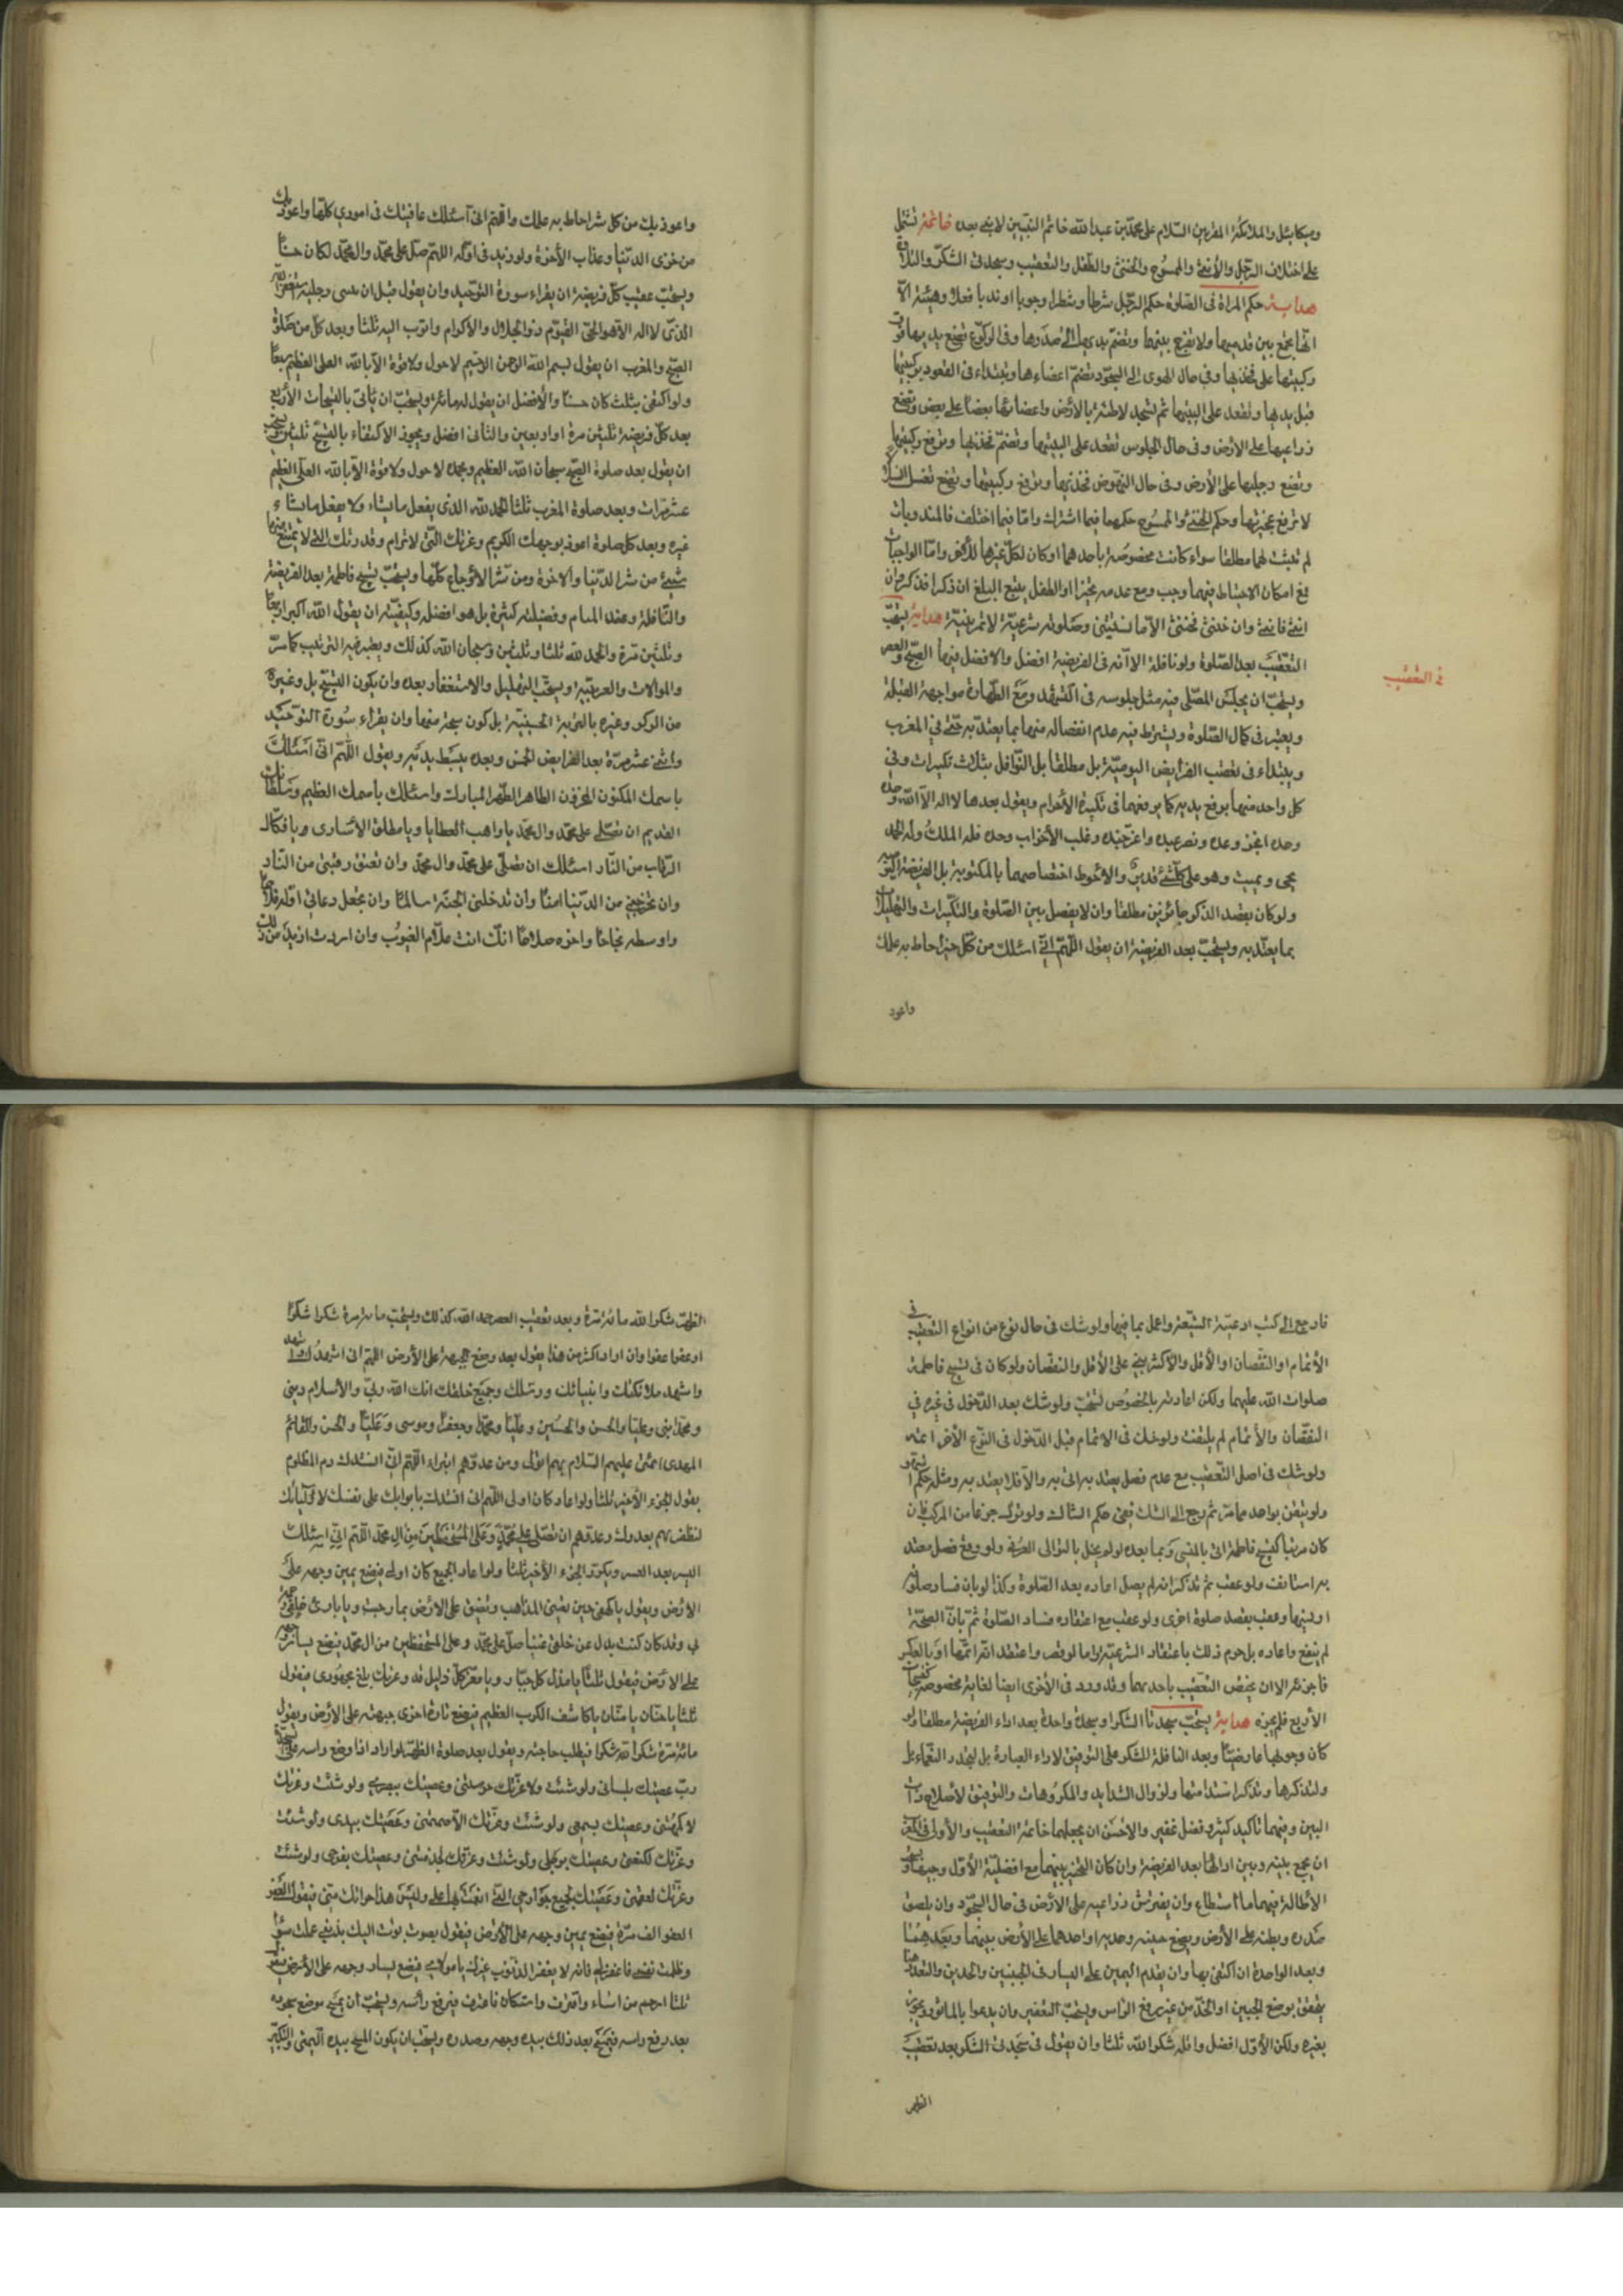 وميكائيل والملائكة المقربين السلام على محمد بن عبد الله خاتم النبيين لا نبي بعده خاتمة تشتمل
على اختلاف الرجل والأنثى والممسوح والخنثى والطفل والتعقيب وسجدتي الشكر والتلاوة
هداية حكم المراة في الصلوة حكم الرجل شرطا وشطرا وجوبا او ندبا فعلا وهيئة الا
انها تجمع بين قدميها ولا تفرج بينهما وتضم يديها الى صدرها وفي الركوع تضع يديها فوق
ركبتيها على فخذيها وفي حال الهوى الى السجود تضم اعضاءها وتبتداء في القعود بركبتيها
قبل يديها وتقعد على اليتيها ثم تسجد لاطئة بالأرض واعضائها بعضا على بعض وتضع
ذراعيها على الارض وفي حال الجلوس تقعد على اليتيها وتضم فخذيها وترفع ركبتيها
وتضع رجليها على الأرض وفي حال النهوض فخذيها وترفع ركبتيها وتنسل انسلالا
لا ترفع عجيزتها وحكم الخنثى والممسوح حكمهما فيما اشترك واما فيما اختلف فالمندوبات
لم تثبت لهما مطلقا سواء كانت مخصوصة باحدهما او كان لكل غيرها للآخر واما الواجبات
فمع امكان الاحتياط فيهما وجب ومع عدمه تخيرا والطفل يتبع البلغ ان ذكرا فذكر وان
انثى فانثى وان خنثى فخنثى الا ما استثنى وصلوته شرعية لا تمرينية هداية يستحب
في التعقيب
التعقيب بعد الصلوة ولو نافلة الا انه في الفريضة افضل والافضل فيها الصبح والعصر
ويستحب ان يجلس المصلى فيه مثل جلوسه في التشهد ومع الطهارة مواجهة القبلة
ويعتبر في كمال الصلوة ويشترط فيه عدم انفصاله منها بما يعتد به حتى في المغرب
ويبتداء في تعقيب الفرايض اليومية بل مطلقا بل النوافل بثلاث تكبيرات وفي
كل واحد منها يرفع يديه كما يرفعهما في تكبيرة الأحرام ويقول بعدها لا اله الا الله وحده
وحده انجز وعده ونصر عبده واعز جنده وغلب الأحزاب وحده فله الملك وله الحمد
يحيى ويميت وهو على كل شئ قدير والأحوط اختصاصهما بالمكتوبة بل الفريضة اليومية
ولو كان بقصد الذكر جائز من مطلقا وان لا يفصل بين الصلوة والتكبيرات والتهليلات
بما يعتد به ويستحب بعد الفريضة ان يقول اللهم اني اسئلك من كل خير احاط به علمك
واعوذ
واعوذ بك من كل شر احاط به علمك واللهم اني اسئلك عافيتك في اموري كلها واعوذ بك
من خزى الدنيا وعذاب الأخرة ولو زيد في اوله اللهم صل على محمد وال محمد لكان حسنا
ويستحب عقيب كل فريضة ان يقراء سورة التوحيد وان يقول قبل ان يثنى رجليه استغفر الله
الذي لا اله الا هو الحي القيوم ذو الجلال والاكرام واتوب اليه ثلثا وبعد كل من صلوة
الصبح والمغرب ان يقول بسم الله الرحمن الرحيم لا حول ولا قوة الا بالله العلى العظيم سبعا
ولو اكتفى بثلث كان حسنا والأفضل ان يقوله مائة ويستحب ان ياتى بالتسبيحات الأربع
بعد كل فريضة ثلثين مرة او اربعين والثاني افضل ويجوز الاكتفاء بالتسبيح ثلثين ويستحب
ان يقول بعد صلوة الصبح سبحان الله العظيم وبحمده لا حول ولا قوة الا بالله العلى العظيم
عشر مرات وبعد صلوة المغرب ثلثا الحمد لله الذي يفعل ما يشاء ولا يفعل ما يشاء
غيره وبعد كل صلوة اعوذ بوجهك الكريم وعزتك التى لا ترام وقدرتك التى لا يمتنع منها
شئ من شر الدنيا والاخرة ومن شر الاوجاع كلها ويستحب تسبيح فاطمة بعد الفريضة
والنافلة وعند المنام وفضيلته كثيرة بل هو افضل وكيفيته ان يقول الله اكبر اربعا
وثلثين مرة والحمد لله ثلثا وثلثين وسبحان الله كذلك ويعتبر فيه الترتيب كما مر
والموالات والعربية ويستحب التهليل والاستغفار بعده وان يكون التسبيح بل وغيره
من الذكر وغيره بالتربة الحسينية بل كون سبحة منها وان يقراء سورة التوحيد
واثنى عشر مرة بعد الفرايض الخمس وبعده يبسط يديه ويقول اللهم اني اسئلك
باسمك المكنون المخزون الطاهر الطهر المبارك واسئلك باسمك العظيم وسلطانك
القديم ان تصلى على محمد وال محمد يا واهب العطايا ويا مطلق الأسارى ويا فكاك
الرقاب من النار اسئلك ان تصلى على محمد وال محمد وان تعتق رقبتى من النار
وان تخرجني من الدنيا امنا وان تدخلنى الجنة سالما وان تجعل دعائي اوله فلاحا
واوسطه نجاحا واخره صلاحا انك انت علام الغيوب وان اردت ازيد من ذلك
فارجع الى كتب ادعية الشيعة واعمل بما فيها ولو شك في حال نوع من انواع التعقيب في
الأتمام او النقصان او الأقل والاكثر يبنى على الأقل والنقصان ولو كان في تسبيح فاطمة
صلوات الله عليها ولكن اعادته بالخصوص تستحب ولو شك بعد الدخول في غيره في
النقصان والأتمام لم يلتفت ولو شك في الاتمام قبل الدخول في النوع الأخر اعتد
ولو شك في اصل التعقيب مع عدم فصل يعتد به اتى به والا فلا يعتد به ومثل حكم
ولو تيقن بواحد مما مر ثم رجع الى الشك فيجئ حكم الشاك ولو ترك جزءا من المركب فان
كان مرتبا كتسبيح فاطمة اتى بالمنسى وبما بعده لو لم يخل بالتوالى العرفى ولو وقع فصل معتد
به استانف ولو عقب ثم تذكر انه لم يصل اعاده بعد الصلوة وكذا لو بان فساد صلوته
او نسيها وعقب بقصد صلوة اخرى ولو عقب مع اعتقاده فساد الصلوة ثم بان الصحة
لم ينفع واعاده بل حرم ذلك باعتقاد الشرعية واما لو قصر واعتقد انه اتمها او بالعكس
فاجزئه الا ان يختص التعقيب باحدهما وقد ورد في الأخرى ايضا لغاية مخصوصة كتسبيحات
الأربع فلم يجزه هداية يستحب سجدتا الشكر او سجدة واحدة بعد اداء الفريضة مطلقا ولو
كان وجوبها عارضيا وبعد النافلة للشكر على التوفيق لاداء العبارة بل لتجدد النعماء بل
ولتذكرها وتذكر شيئا منها ولزوال الشدايد والمكروهات والتوفيق لأصلاح ذات
البين وفيهما تاكيد كثير وفضل غفير والأحسن ان يجعلها خاتمة التعقيب والأولى في المغرب
ان يجمع بينه وبين ادائها بعد الفريضة وان كان التخير بينهما مع افضلية الأول وجيها
الأطالة فيهما ما استطاع وان يفترش ذراعيه على الأرض في حال السجود وان يلصق
صدره وبطنه على الأرض ويضع جبينه وخديه او احدهما على الأرض بينهما وبعدهما
وبعد الواحدة ان اكتفى بها وان يقدم اليمين على اليسار في الجبينين والخدين والتعدد هنا
يتحقق بوضع الجبين او الخد من غير رفع الراس ويستحب التعفير وان يدعوا بالماثور ويجوز
بغيره ولكن الأول افضل واقله شكرا لله ثلثا وان يقول في سجدتى الشكر بعد تعقيب
الظهر
الظهر شكرا لله مائة مرة وبعد تعقيب العصر حمدا لله كذلك ويستحب مائة مرة شكرا شكرا
او عفوا عفوا وان اراد اكثر من هذا يقول بعد وضع الجبهة على الأرض اللهم انى اشهدك
واشهد ملائكتك وانبيائك ورسلك وجميع خلقك انك الله ربى والأسلام دينى
ومحمدا نبى وعليا والحسن والحسين وعليا ومحمدا وجعفرا وموسى وعليا والحسن والقائم
المهدى ائمتى عليهم السلام بهم اتولى ومن عدوهم اتبراء اللهم انى انشدك دم المظلوم
يقول الجزء الأخير ثلثا ولو اعاد كان اولى اللهم انى انشدك بايوائك على نفسك لأوليائك
لتظفرنهم بعدوك وعدوهم ان تصلى على محمد وعلى المستحفظين من ال محمد اللهم اني اسئلك
اليسر بعد العسر ويكرر الجزء الأخير ثلثا ولو اعاد الجميع كان اولى فيضع يمين وجهه على
الأرض ويقول يا كهفى حين تعيينى المذاهب وتضيق على الأرض بما رحبت ويا بارئ خلقى رحمة
بى وقد كان كنت بدل عن خلقى غنيا صل على محمد وعلى المستحفظين من ال محمد فيضع يسار وجهه
على الأرض فيقول ثلثا يا مذل كل جبار ويا معز كل ذليل قد وعزتك بلغ مجهودى فيقول
ثلثا يا حنان يا منان يا كاشف الكرب العظيم فيضع تارة اخرى جبهته على الأرض ويقول
مائة مرة شكرا شكرا فيطلب حاجته ويقول بعد صلوة الظهر لو اراد اذا وضع راسه على السجدة
رب عصيتك بلسانى ولو شئت وعزتك لأخرستنى وعصيتك ببصرى ولو شئت وعزتك
لأكمهتنى وعصيتك بسمعى ولو شئت وعزتك لأصممتنى وعصيتك بيدى ولو شئت
وعزتك لكنعتنى وعصيتك برجلى ولو شئت وعزتك لجذمتنى وعصيتك بفرجى ولو شئت
وعزتك لعقمتنى وعصيتك بجميع جوارحى التى انعمت بها على وليس هذا جزائك منى فيقول العفو
العفو الف مرة فيضع يمين وجهه على الأرض فيقول بصوت بؤت اليك بذنبى عملت سوءا
وظلمت نفسى فاغفر لى فانه لا يغفر الذنوب غيرك يا مولاى فيضع يسار وجهه على الأرض فيقول
ثلثا ارحم من اساء واقترف واستكان فاعترف فيرفع رأسه ويستحب ان يمسح موضع سجوده
بعد رفع راسه فيمسح بعد ذلك بيده وجهه وصدره ويستحب ان يكون المسح بيده اليمنى والتكبير